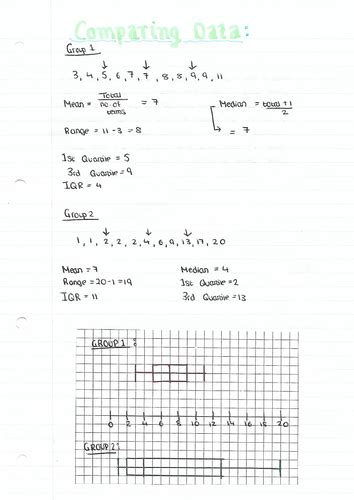 Comparing Data:
Group 1
3, 4, 5, 6, 7, 7, 8, 8, 9, 9, 11
Mean = Total / no. of terms = 7
Median = total + 1 / 2
= 7
Range = 11 - 3 = 8
1st Quartile = 5
3rd Quartile = 9
IQR = 4
Group 2
1, 1, 2, 2, 2, 4, 6, 9, 13, 17, 20
Mean = 7
Median = 4
Range = 20 - 1 = 19
1st Quartile = 2
IQR = 11
3rd Quartile = 13
GROUP 1:
0 2 4 6 8 10 12 14 16 18 20
GROUP 2: